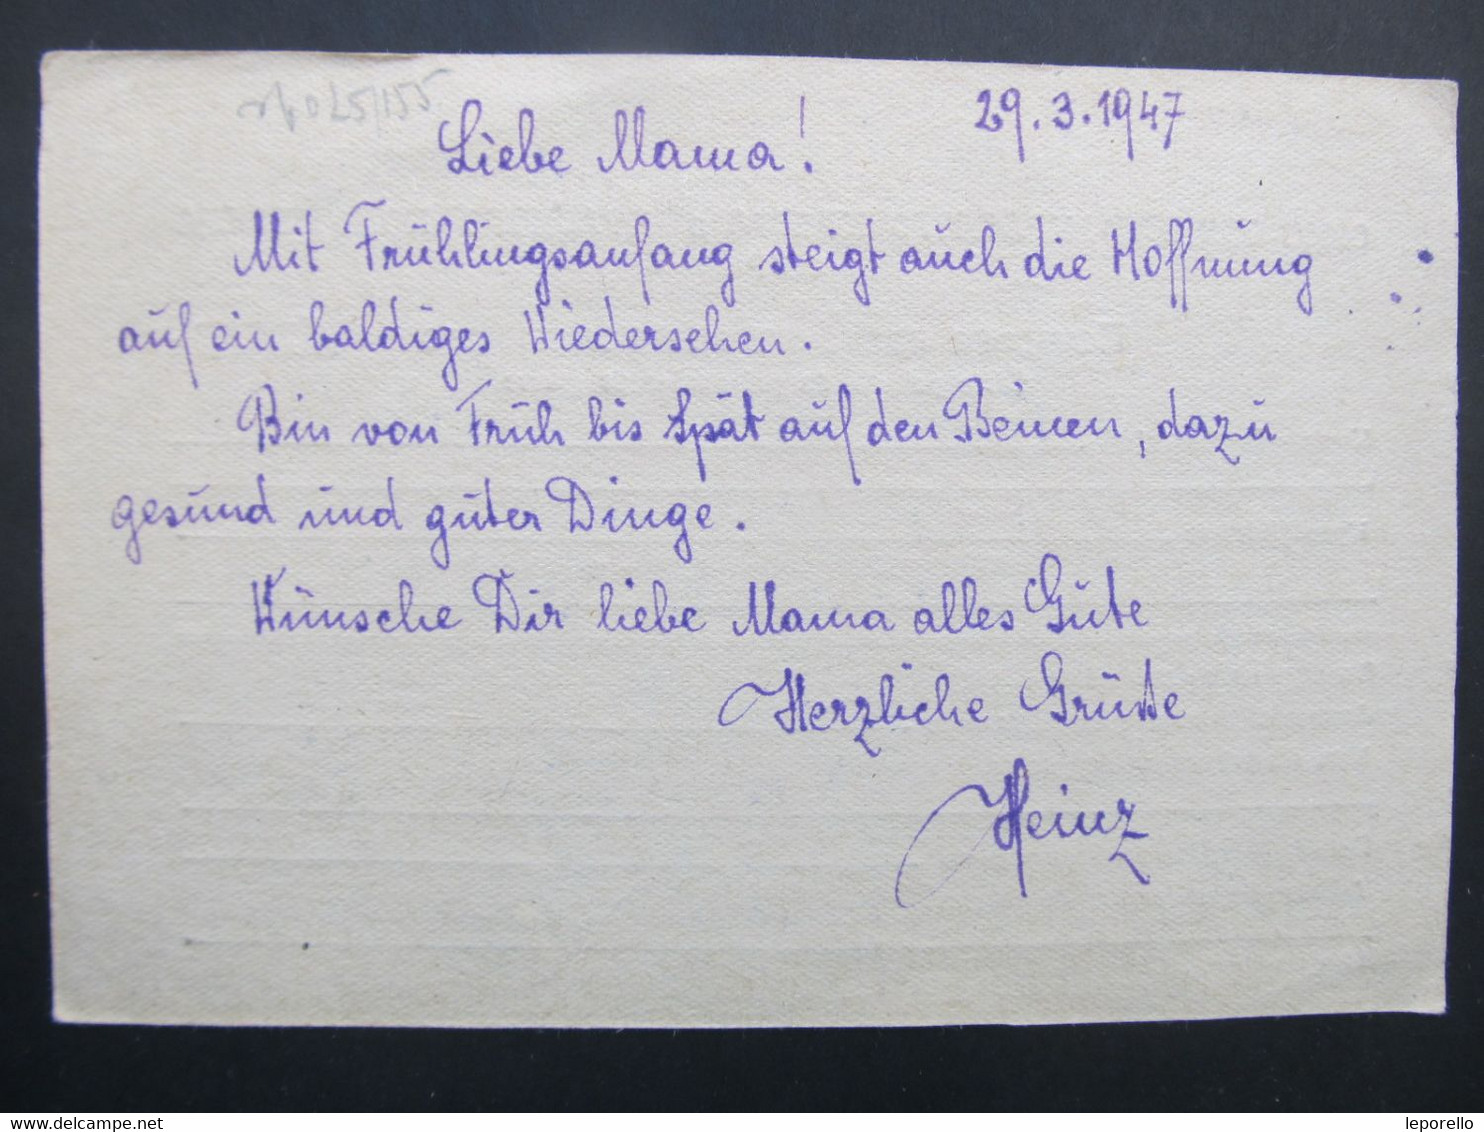 29.3.1947
Liebe Mama!
Mit Frühlingsanfang steigt auch die Hoffnung
auf ein baldiges Wiedersehen.
Bin von Früh bis Spät auf den Beinen, dazu
gesund und guter Dinge.
Wünsche Dir liebe Mama alles Gute
Herzliche Grüsse
Heinz
www.delcampe.net
leporello